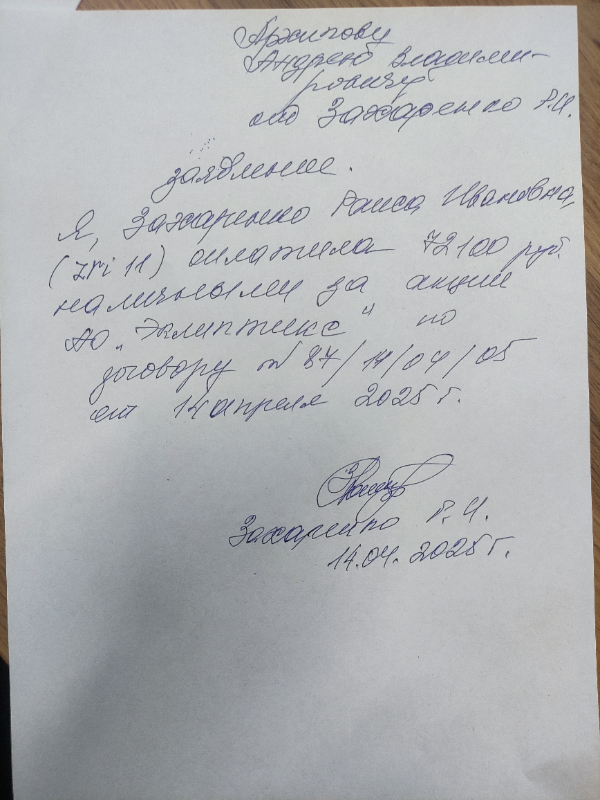 Архипову
Андрею Владими-
ровичу
от Захаренко Р.И.
заявление.
Я, Захаренко Раиса Ивановна,
(zri 11) оплатила 72100 руб.
наличными за акции
АО "Эклиптикс" по
договору № 87/14/04/05
от 14 апреля 2025 г.
Захаренко Р.И.
14.04.2025 г.